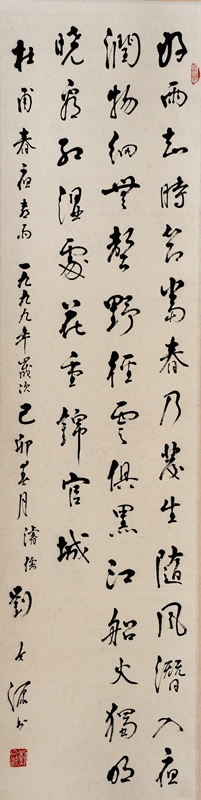 好雨知時節當春乃發生隨風潛入夜
潤物細無聲野徑雲俱黑江船火獨明
曉看紅濕處花重錦官城
杜甫春夜喜雨一九九九年歲次己卯春月劉源书